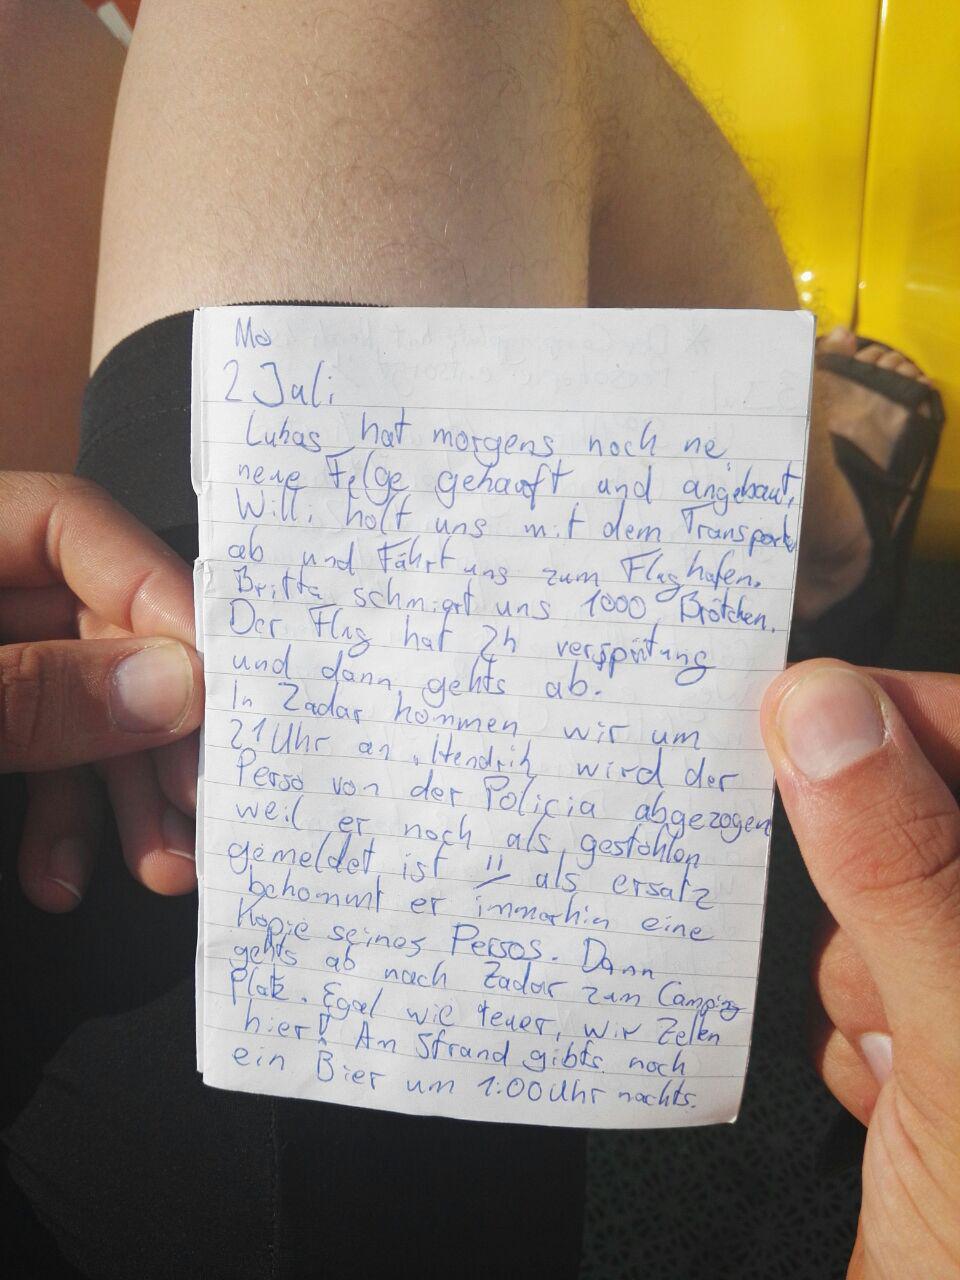 Mo
2 Juli
Lukas hat morgens noch ne
neue Felge gekauft und angebaut,
Willi holt uns mit dem Transporter
ab und Fährt uns zum Flughafen.
Britta schmiert uns 1000 Brötchen.
Der Flug hat 2h verspätung
und dann gehts ab.
In Zadar kommen wir um
21 Uhr an, Hendrik wird der
Perso von der Policia abgezogen
weil er noch als gestohlen
gemeldet ist als ersatz
bekommt er immerhin eine
Kopie seines Persos. Dann
gehts ab nach Zadar zum Camping
Platz. Egal wie teuer, wir Zelten
hier! Am Strand gibts noch
ein Bier um 1:00 Uhr nachts.